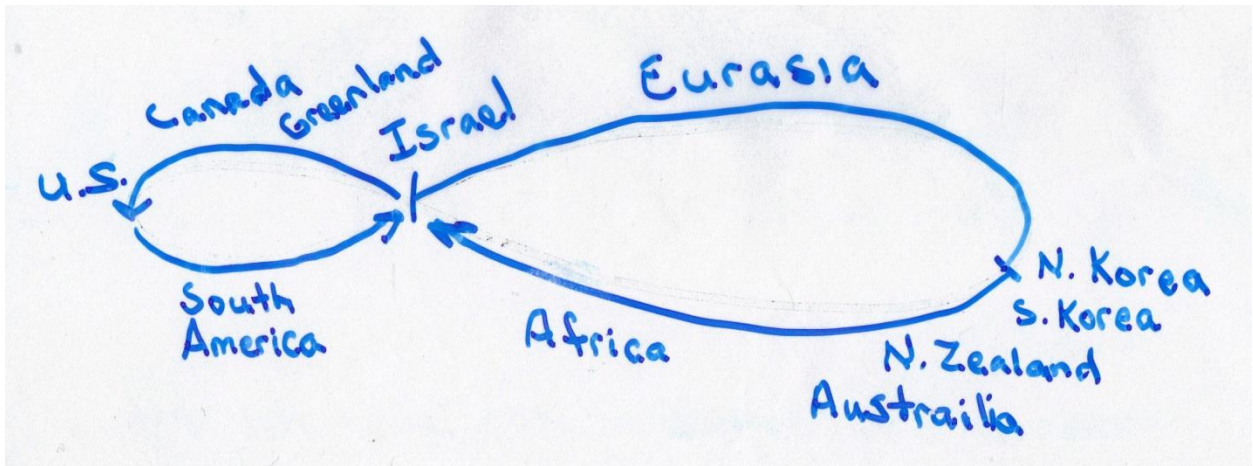 Canada
Greenland
Israel
Eurasia
U.S.
South
America
Africa
N. Korea
S. Korea
N. Zealand
Austrailia